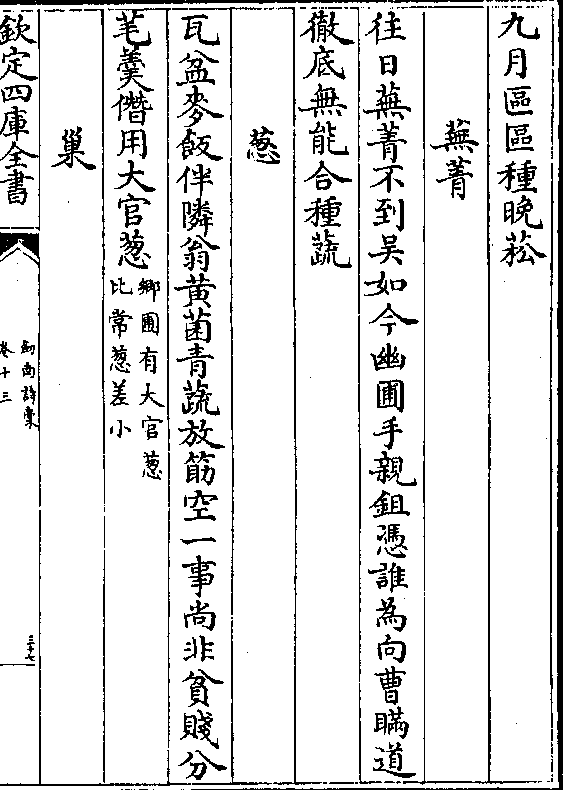 九月區區種晚菘
蕪菁
往日蕪菁不到吳如今幽圃手親鉏憑誰為向曹瞞道
徹底無能合種蔬
葱
瓦盆麥飯伴隣翁黃菌青蔬放筯空一事尚非貧賤分
芼羮僭用大官葱鄉圃有大官葱
比常葱差小
巢
欽定四庫全書
劍南詩槀
卷十三
三十七